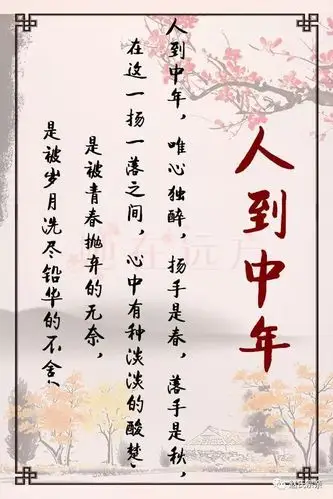 人到中年
人到中年，唯心独醉，扬手是春，落手是秋，
在这一扬一落之间，心中有种淡淡的酸楚、
是被青春抛弃的无奈，
是被岁月洗尽铅华的不舍、
在远方